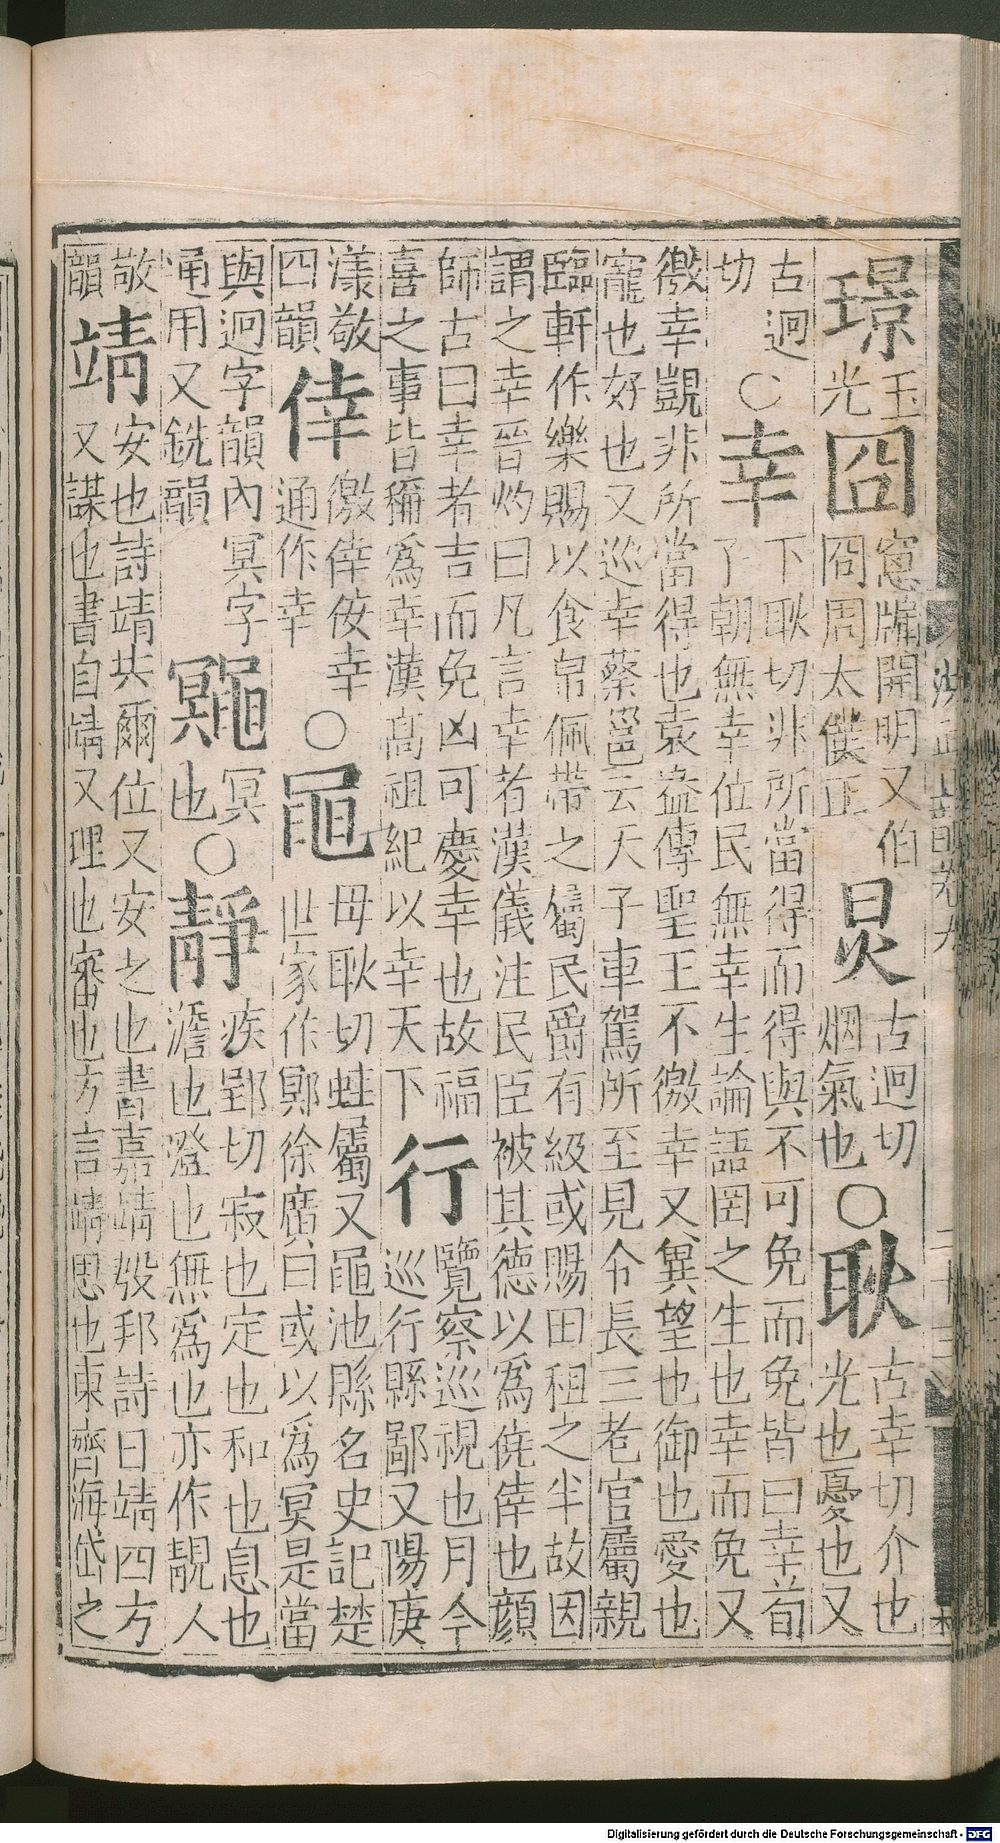 璟玉光囧窻牖開明又伯冏周太僕正炅古迥切烟氣也○耿古幸切介也光也憂也又
古迥切○幸下耿切非所當得而得與不可免而免皆曰幸荀子朝無幸位民無幸生論語罔之生也幸而免又
徼幸覬非所當得也袁盎傳聖王不徼幸又兾望也御也愛也寵也好也又巡幸蔡邕云天子車駕所至見令長三老官屬親
臨軒作樂賜以食帛佩帶之屬民爵有級或賜田租之半故因謂之幸晉灼曰凡言幸者漢儀注民臣被其德以爲僥倖也顔
師古曰幸者吉而免凶可慶幸也故福喜之事皆稱爲幸漢高祖紀以幸天下行覽察巡視也月令巡行縣鄙又陽庚
漾敬四韻倖徼倖佞幸通作幸○黽母耿切蛙屬又黽池縣名史記楚世家作鄳徐廣曰或以爲冥是當
與迥字韻內冥字通用又銑韻鼆冥也○靜疾郢切寂也定也和也息也澹也澄也無爲也亦作靚人
敬韻靖安也詩靖共爾位又安之也書嘉靖殷邦詩日靖四方又謀也書自靖又理也審也方言靖思也東齊海岱之
Digitalisierung gefördert durch die Deutsche Forschungsgemeinschaft - DFG